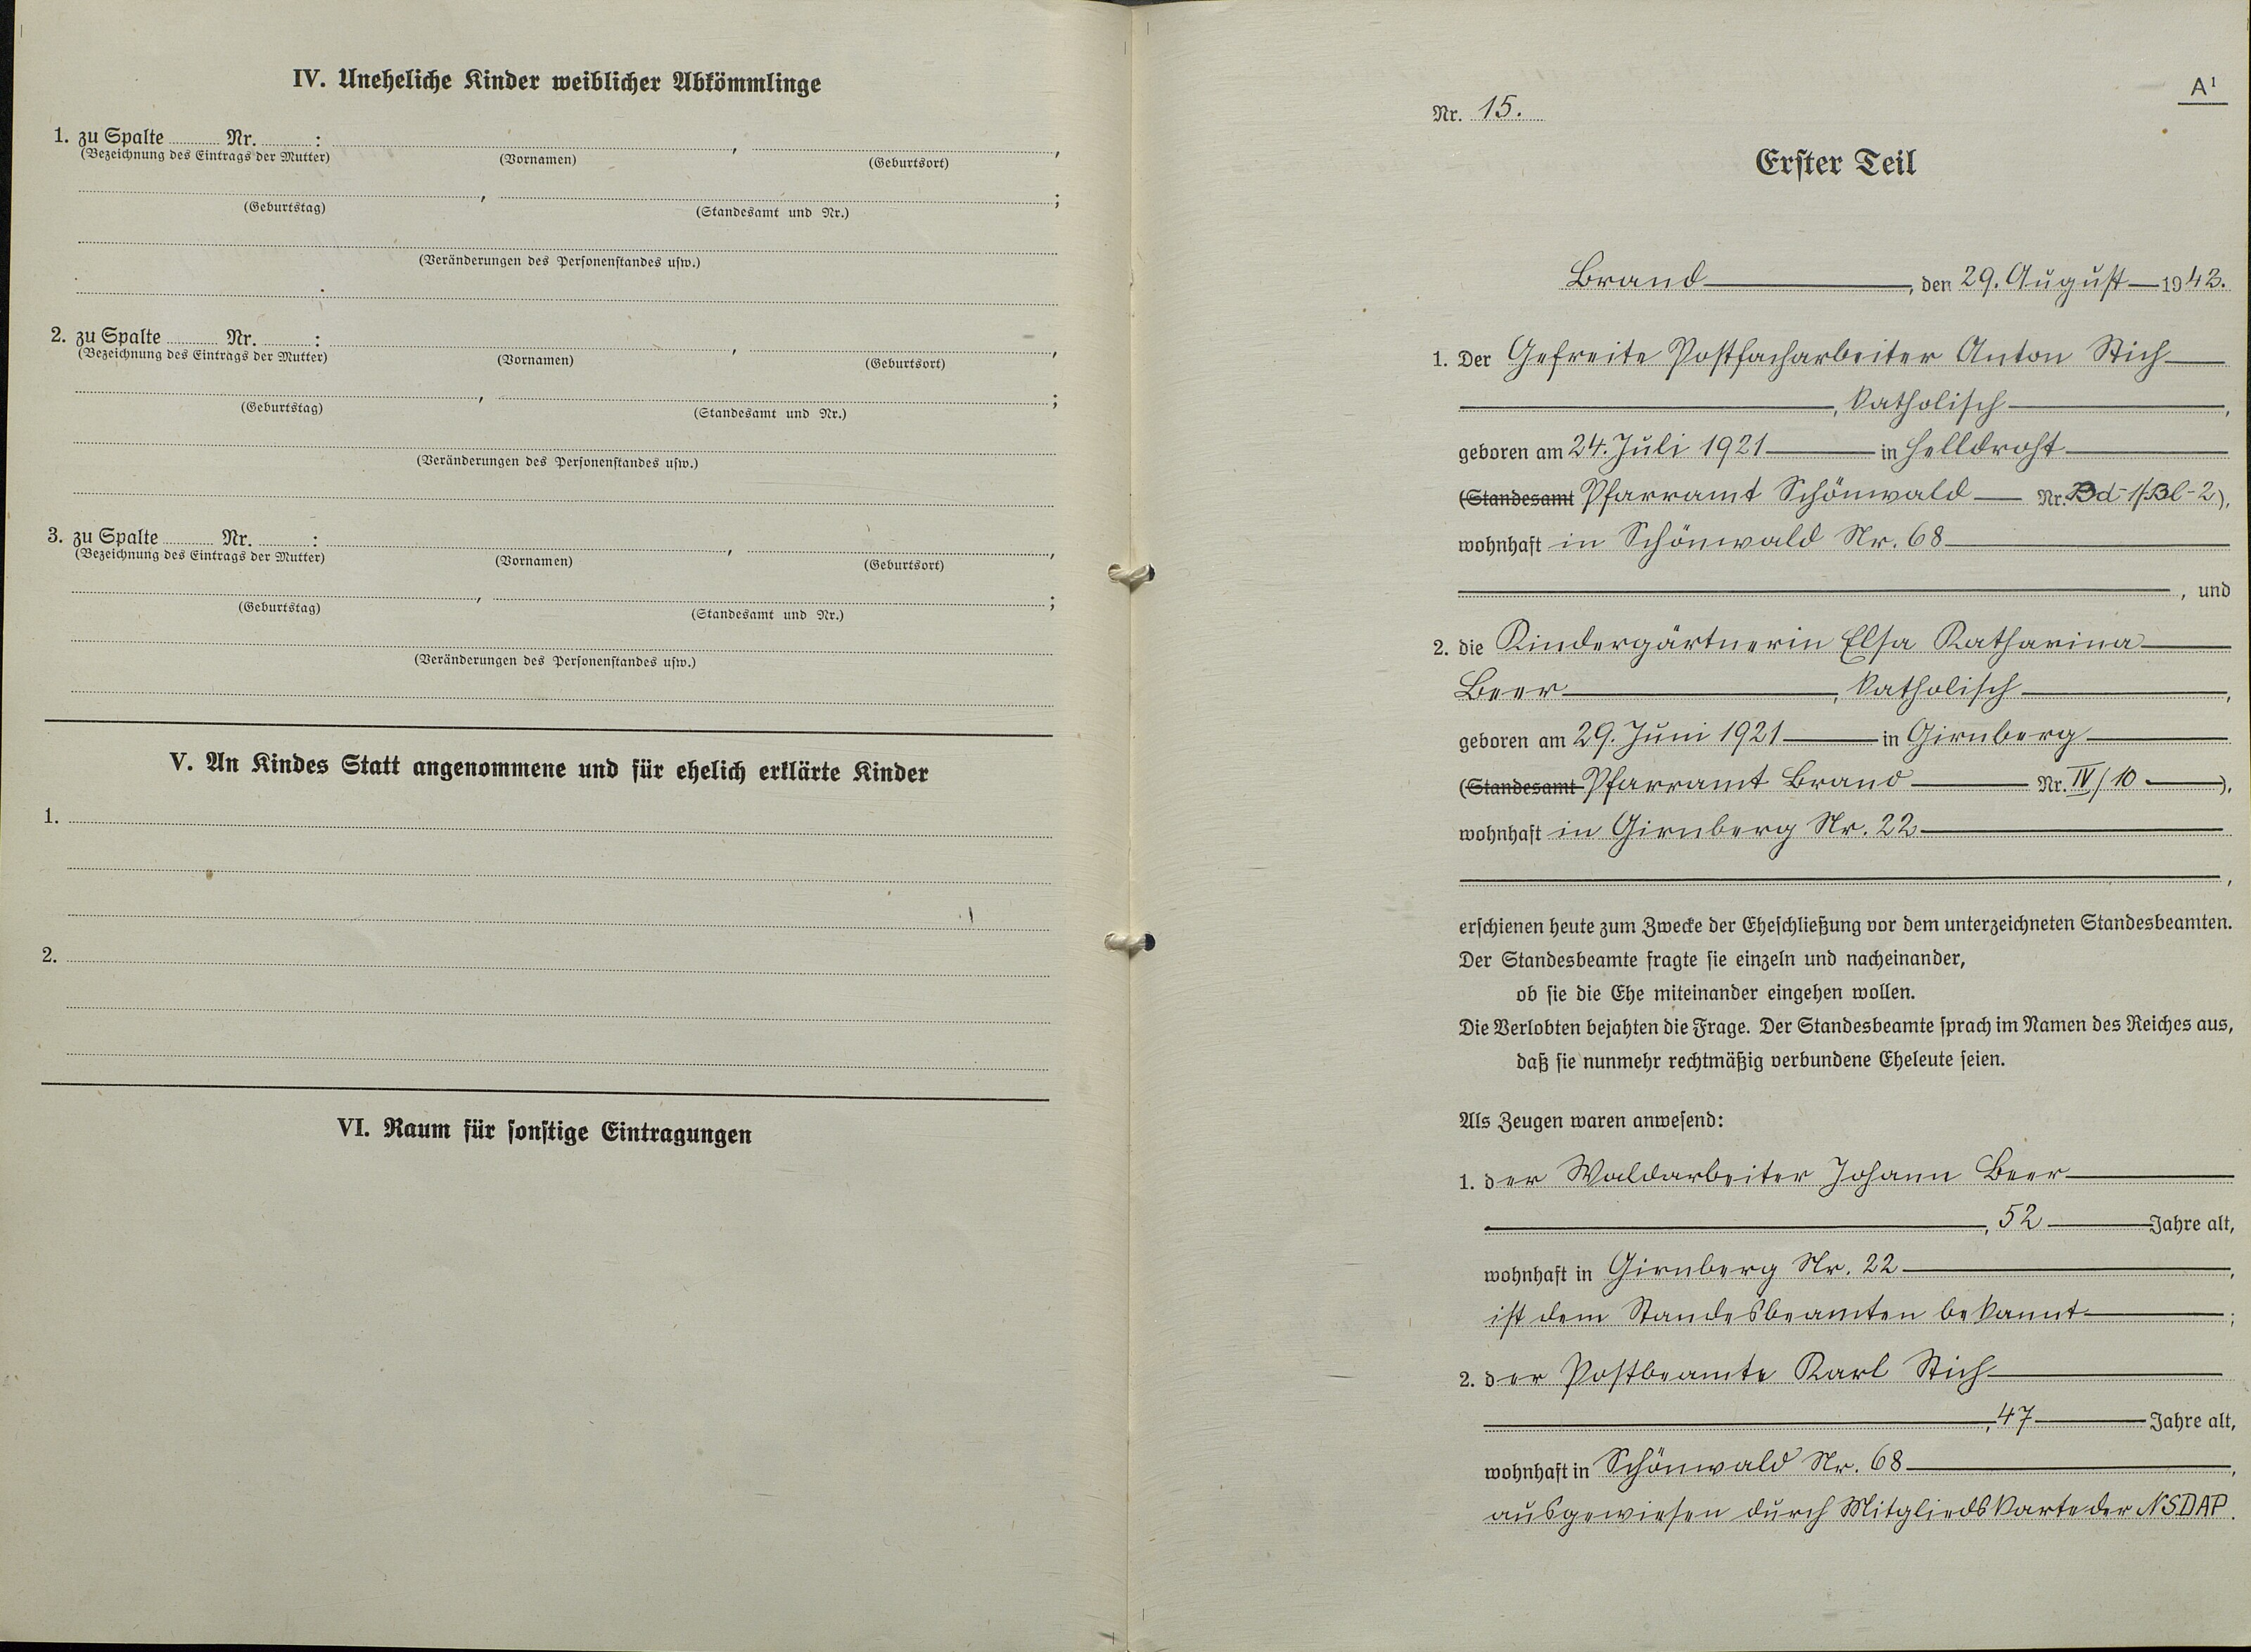 IV. Uneheliche Kinder weiblicher Abkömmlinge
1. zu Spalte Nr. : , ,
(Bezeichnung des Eintrags der Mutter) (Vornamen) (Geburtsort)
, ;
(Geburtstag) (Standesamt und Nr.)
(Veränderungen des Personenstandes usw.)
2. zu Spalte Nr. : , ,
(Bezeichnung des Eintrags der Mutter) (Vornamen) (Geburtsort)
, ;
(Geburtstag) (Standesamt und Nr.)
(Veränderungen des Personenstandes usw.)
3. zu Spalte Nr. : , ,
(Bezeichnung des Eintrags der Mutter) (Vornamen) (Geburtsort)
, ;
(Geburtstag) (Standesamt und Nr.)
(Veränderungen des Personenstandes usw.)
V. An Kindes Statt angenommene und für ehelich erklärte Kinder
1.
2.
VI. Raum für sonstige Eintragungen
A1
Nr. 15.
Erster Teil
Brand, den 29. August 1943.
1. Der Gefreite Postfacharbeiter Anton Stich
, katholisch,
geboren am 24. Juli 1921 in
(Standesamt Pfarramt Schönwald Nr. Bd-1/Bl-2),
wohnhaft in Schönwald Nr. 68
, und
2. die Kindergärtnerin Elsa Katharina
Beer, katholisch,
geboren am 29. Juni 1921 in Girnberg
(Standesamt Pfarramt Brand Nr. IV/10),
wohnhaft in Girnberg Nr. 22
,
erschienen heute zum Zwecke der Eheschließung vor dem unterzeichneten Standesbeamten.
Der Standesbeamte fragte sie einzeln und nacheinander,
ob sie die Ehe miteinander eingehen wollen.
Die Verlobten bejahten die Frage. Der Standesbeamte sprach im Namen des Reiches aus,
daß sie nunmehr rechtmäßig verbundene Eheleute seien.
Als Zeugen waren anwesend:
1. der Waldarbeiter Johann Beer
, 52 Jahre alt,
wohnhaft in Girnberg Nr. 22,
ist dem Standesbeamten bekannt;
2. der Postbeamte Karl Stich
, 47 Jahre alt,
wohnhaft in Schönwald Nr. 68,
ausgewiesen durch Mitgliedskarte der NSDAP.